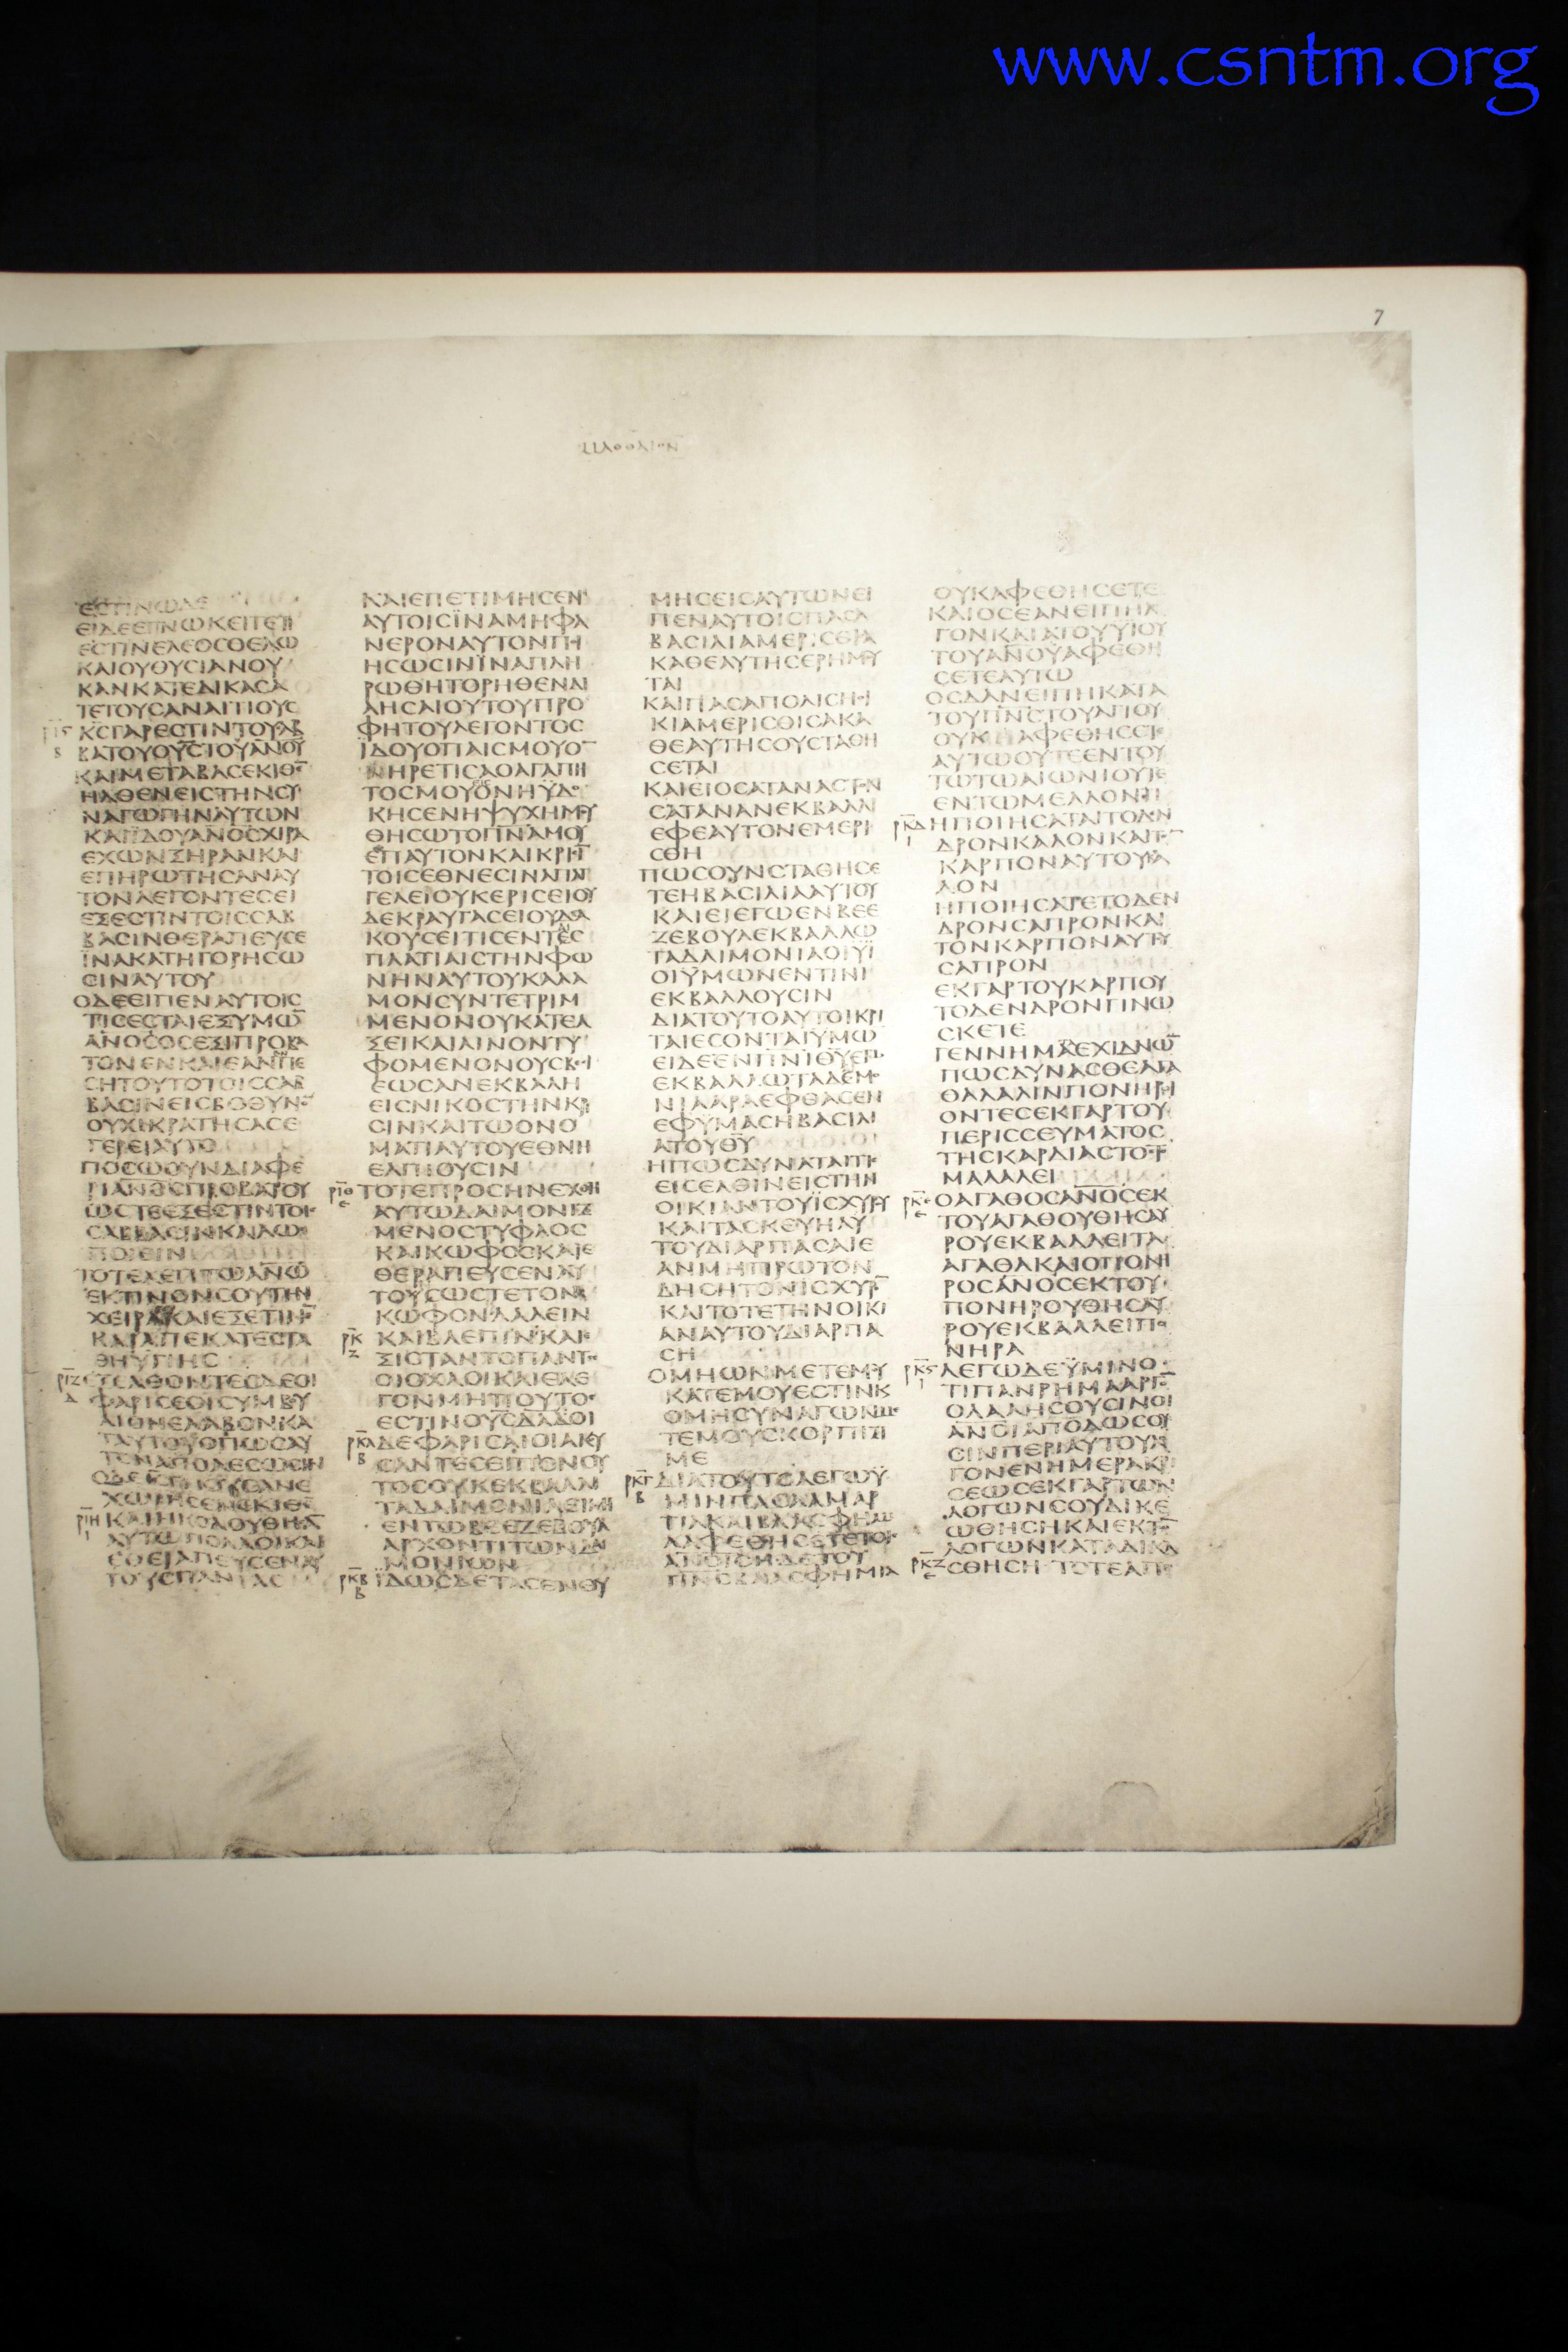 www.csntm.org
7
ΕСΤΙΝωΔΕ
ΕΙΔΕΕΓΝωΚΕΙΤΕΤΙ
ΕСΤΙΝΕΛΕΟСΘΕΛω
ΚΑΙΟΥΘΥСΙΑΝΟΥ
ΚΑΝΚΑΤΕΔΙΚΑСΑ
ΤΕΤΟΥСΑΝΑΙΤΙΟΥС
ΚСΓΑΡΕСΤΙΝΤΟΥСΑΒ
ΒΑΤΟΥΟΥСΤΟΥΑΝΟΥ
ΚΑΙΜΕΤΑΒΑСΕΚΙΘΕ
ΗΛΘΕΝΕΙСΤΗΝСΥ
ΝΑΓωΓΗΝΑΥΤωΝ
ΚΑΙΪΔΟΥΑΝΟСΧΙΡΑ
ΕΧωΝΞΗΡΑΝΚΑΙ
ΕΠΗΡωΤΗСΑΝΑΥ
ΤΟΝΛΕΓΟΝΤΕСΕΙ
ΕΞΕСΤΙΝΤΟΙССΑΒ
ΒΑСΙΝΘΕΡΑΠΕΥСΕ
ΪΝΑΚΑΤΗΓΟΡΗСω
СΙΝΑΥΤΟΥ
ΟΔΕΕΙΠΕΝΑΥΤΟΙС
ΤΙСΕСΤΑΙΕΞΥΜω
ΑΝΟСΟСΕΞΙΠΡΟΒΑ
ΤΟΝΕΝΚΑΙΕΑΝΠΕ
СΗΤΟΥΤΟΤΟΙССΑΒ
ΒΑСΙΝΕΙСΒΟΘΥΝΟ
ΟΥΧΙΚΡΑΤΗСΑСΕ
ΓΕΡΕΙΑΥΤΟ
ΠΟСωΟΥΝΔΙΑΦΕ
ΡΙΑΝΟСΠΡΟΒΑΤΟΥ
ωСΤΕΕΞΕСΤΙΝΤΟΙС
СΑΒΒΑСΙΝΚΑΛωС
ΠΟΙΕΙΝ
ΤΟΤΕΛΕΓΙΤωΑΝω
ΕΚΤΙΝΟΝСΟΥΤΗΝ
ΧΕΙΡΑΚΑΙΕΞΕΤΙΝΕ
ΚΑΙΑΠΕΚΑΤΕСΤΑ
ΘΗΫΓΙΗС
ΕΞΕΛΘΟΝΤΕСΔΕΟΙ
ΦΑΡΙСΕΟΙСΥΜΒΥ
ΛΙΟΝΕΛΑΒΟΝΚΑ
ΤΑΥΤΟΥΟΠωСΑΥ
ΤΟΝΑΠΟΛΕСωСΙΝ
ΧωΡΗСΕΝΕΚΙΘΕ
ΚΑΙΗΚΟΛΟΥΘΗСΑ
ΑΥΤωΠΟΛΛΟΙΚΑΙ
ΕΘΕΡΑΠΕΥСΕΝΑΥ
ΤΟΥСΠΑΝΤΑС
ΚΑΙΕΠΕΤΙΜΗСΕΝ
ΑΥΤΟΙСΪΝΑΜΗΦΑ
ΝΕΡΟΝΑΥΤΟΝΠΗ
ΗСωСΙΝΪΝΑΠΛΗ
ΡωΘΗΤΟΡΗΘΕΝΔΙ
ΑΗСΑΙΟΥΤΟΥΠΡΟ
ΦΗΤΟΥΛΕΓΟΝΤΟС
ΪΔΟΥΟΠΑΙСΜΟΥΟ
ΗΡΕΤΙСΑΟΑΓΑΠΗ
ΤΟСΜΟΥΟΝΗΫΔΟ
ΚΗСΕΝΗΨΥΧΗΜΟΥ
ΘΗСωΤΟΠΝΑΜΟΥ
ΕΠΑΥΤΟΝΚΑΙΚΡΙСΙ
ΤΟΙСΕΘΝΕСΙΝΑΠΑΓ
ΓΕΛΕΙΟΥΚΕΡΙСΕΙΟΥ
ΔΕΚΡΑΥΓΑСΕΙΟΥΔΕΑ
ΚΟΥСΕΙΤΙСΕΝΤΕС
ΠΛΑΤΙΑΙСΤΗΝΦω
ΝΗΝΑΥΤΟΥΚΑΛΑ
ΜΟΝСΥΝΤΕΤΡΙΜ
ΜΕΝΟΝΟΥΚΑΤΕΑ
ΞΕΙΚΑΙΛΙΝΟΝΤΥ
ΦΟΜΕΝΟΝΟΥСΒΕΙ
ΕωСΑΝΕΚΒΑΛΗ
ΕΙСΝΙΚΟСΤΗΝΚΡΙ
СΙΝΚΑΙΤωΟΝΟ
ΜΑΤΙΑΥΤΟΥΕΘΝΗ
ΕΛΠΙΟΥСΙΝ
ΤΟΤΕΠΡΟСΗΝΕΧΘΗ
ΑΥΤωΔΑΙΜΟΝΙΖΟ
ΜΕΝΟСΤΥΦΛΟС
ΚΑΙΚωΦΟСΚΑΙΕ
ΘΕΡΑΠΕΥСΕΝΑΥ
ΤΟΥСωСΤΕΤΟΝ
ΚωΦΟΝΛΑΛΕΙΝ
ΚΑΙΒΛΕΠΙΝΚΑΙΕ
ΞΙСΤΑΝΤΟΠΑΝΤΕС
ΟΙΟΧΛΟΙΚΑΙΕΛΕ
ΓΟΝΜΗΤΙΟΥΤΟС
ΕСΤΙΝΟΥСΔΑΔΟΙ
ΔΕΦΑΡΙСΑΙΟΙΑΚΟΥ
СΑΝΤΕСΕΙΠΟΝΟΥ
ΤΟСΟΥΚΕΚΒΑΛΛΙ
ΤΑΔΑΙΜΟΝΙΑΕΙΜΗ
ΕΝΤωΒΕΕΖΕΒΟΥΛ
ΑΡΧΟΝΤΙΤωΝΔΑΙ
ΜΟΝΙωΝ
ΪΔωСΔΕΤΑСΕΝΘΥ
ΜΗСΕΙСΑΥΤωΝΕΙ
ΠΕΝΑΥΤΟΙСΠΑСΑ
ΒΑСΙΛΙΑΜΕΡΙСΘΙΑ
ΚΑΘΕΑΥΤΗСΕΡΗΜΟΥ
ΤΑΙ
ΚΑΙΠΑСΑΠΟΛΙСΗΟΙ
ΚΙΑΜΕΡΙСΘΙСΑΚΑ
ΘΕΑΥΤΗСΟΥСΤΑΘΗ
СΕΤΑΙ
ΚΑΙΕΙΟСΑΤΑΝΑСΤΟΝ
СΑΤΑΝΑΝΕΚΒΑΛΛΙ
ΕΦΕΑΥΤΟΝΕΜΕΡΙ
СΘΗ
ΠωСΟΥΝСΤΑΘΗСΕ
ΤΕΗΒΑСΙΛΙΑΑΥΤΟΥ
ΚΑΙΕΙΕΓωΕΝΒΕΕ
ΖΕΒΟΥΛΕΚΒΑΛΛω
ΤΑΔΑΙΜΟΝΙΑΟΙΫΙ
ΟΙΫΜωΝΕΝΤΙΝΙ
ΕΚΒΑΛΛΟΥСΙΝ
ΔΙΑΤΟΥΤΟΑΥΤΟΙΚΡΙ
ΤΑΙΕСΟΝΤΑΙΫΜω
ΕΙΔΕΕΝΠΝΙΘΥΕΓω
ΕΚΒΑΛΛωΤΑΔΕΜΟ
ΝΙΑΑΡΑΕΦΘΑСΕΝ
ΕΦΫΜΑСΗΒΑСΙΛΙ
ΑΤΟΥΘΥ
ΗΠωСΔΥΝΑΤΑΙΤΙС
ΕΙСΕΛΘΙΝΕΙСΤΗΝ
ΟΙΚΙΑΝΤΟΥΪСΧΥΡΟΥ
ΚΑΙΤΑСΚΕΥΗΑΥ
ΤΟΥΔΙΑΡΠΑСΑΙΕ
ΑΝΜΗΠΡωΤΟΝ
ΔΗСΗΤΟΝΙСΧΥΡΟ
ΚΑΙΤΟΤΕΤΗΝΟΙΚΙ
ΑΝΑΥΤΟΥΔΙΑΡΠΑ
СΗ
ΟΜΗωΝΜΕΤΕΜΟΥ
ΚΑΤΕΜΟΥΕСΤΙΝΚ
ΟΜΗСΥΝΑΓωΝΜΕ
ΤΕΜΟΥСΚΟΡΠΙΖΙ
ΜΕ
ΔΙΑΤΟΥΤΟΛΕΓωΫ
ΜΙΝΠΑСΑΑΜΑΡ
ΤΙΑΚΑΙΒΛΑСΦΗΜΙ
ΑΑΦΕΘΗСΕΤΕΤΟΙС
ΑΝΟΙСΗΔΕΤΟΥ
ΠΝСΒΛΑСΦΗΜΙΑ
ΟΥΚΑΦΕΘΗСΕΤΕ
ΚΑΙΟСΕΑΝΕΙΠΗΛΟ
ΓΟΝΚΑΤΑΤΟΥΥΙΟΥ
ΤΟΥΑΝΟΥΑΦΕΘΗ
СΕΤΕΑΥΤω
ΟСΔΑΝΕΙΠΗΚΑΤΑ
ΤΟΥΠΝСΤΟΥΑΓΙΟΥ
ΟΥΚΑΦΕΘΗСΕΤΕ
ΑΥΤωΟΥΤΕΕΝΤΟΥ
ΤωΤωΑΙωΝΙΟΥΤΕ
ΕΝΤωΜΕΛΛΟΝΤΙ
ΗΠΟΙΗСΑΤΑΙΤΟΔΕΝ
ΔΡΟΝΚΑΛΟΝΚΑΙΤΟ
ΚΑΡΠΟΝΑΥΤΟΥΚΑ
ΛΟΝ
ΗΠΟΙΗСΑΤΕΤΟΔΕΝ
ΔΡΟΝСΑΠΡΟΝΚΑΙ
ΤΟΝΚΑΡΠΟΝΑΥΤΟΥ
СΑΠΡΟΝ
ΕΚΓΑΡΤΟΥΚΑΡΠΟΥ
ΤΟΔΕΝΔΡΟΝΓΙΝω
СΚΕΤΕ
ΓΕΝΝΗΜΑΤΕΧΙΔΝω
ΠωСΔΥΝΑСΘΕΑΓΑ
ΘΑΛΑΛΙΝΠΟΝΗΡΟΙ
ΟΝΤΕСΕΚΓΑΡΤΟΥ
ΠΕΡΙССΕΥΜΑΤΟС
ΤΗСΚΑΡΔΙΑСΤΟСΤΟ
ΜΑΛΑΛΕΙ
ΟΑΓΑΘΟСΑΝΟСΕΚ
ΤΟΥΑΓΑΘΟΥΘΗСΑΥ
ΡΟΥΕΚΒΑΛΛΕΙΤΑ
ΑΓΑΘΑΚΑΙΟΠΟΝΗ
ΡΟСΑΝΟСΕΚΤΟΥ
ΠΟΝΗΡΟΥΘΗСΑΥ
ΡΟΥΕΚΒΑΛΛΕΙΠΟ
ΝΗΡΑ
ΛΕΓωΔΕΫΜΙΝΟ
ΤΙΠΑΝΡΗΜΑΑΡΓΟ
ΟΛΑΛΗСΟΥСΙΝΟΙ
ΑΝΟΙΑΠΟΔωСΟΥ
СΙΝΠΕΡΙΑΥΤΟΥΛΟ
ΓΟΝΕΝΗΜΕΡΑΚΡΙ
СΕωСΕΚΓΑΡΤωΝ
ΛΟΓωΝСΟΥΔΙΚΕ
ωΘΗСΗΚΑΙΕΚΤω
ΛΟΓωΝΚΑΤΑΔΙΚΑ
СΘΗСΗ ΤΟΤΕΑΠΕ